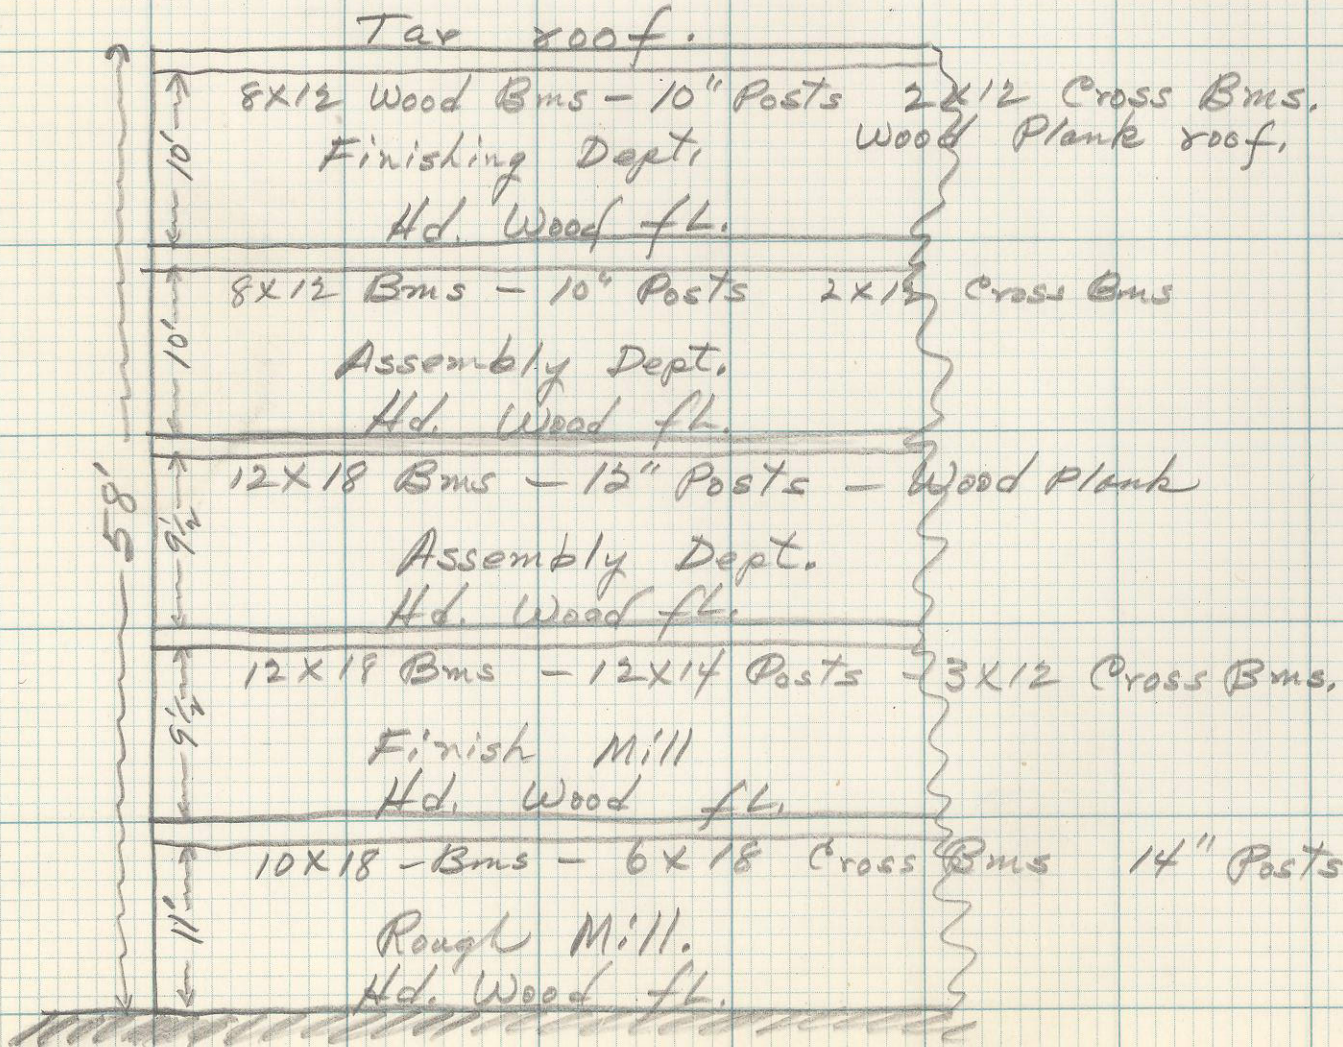 Tar roof.
8X12 Wood Bms - 10" Posts 2X12 Cross Bms.
Wood Plank roof.
10'
Finishing Dept.
Hd. Wood fL.
8X12 Bms - 10" Posts 2X12 Cross Bms
10'
Assembly Dept.
Hd. Wood fL.
58'
12X18 Bms - 12" Posts - Wood Plank
9 1/2'
Assembly Dept.
Hd. Wood fL.
12X18 Bms - 12X14 Posts - 3X12 Cross Bms.
9 1/2'
Finish Mill
Hd. Wood fL.
10X18 - Bms - 6X18 Cross Bms 14" Posts
11'
Rough Mill.
Hd. Wood fL.